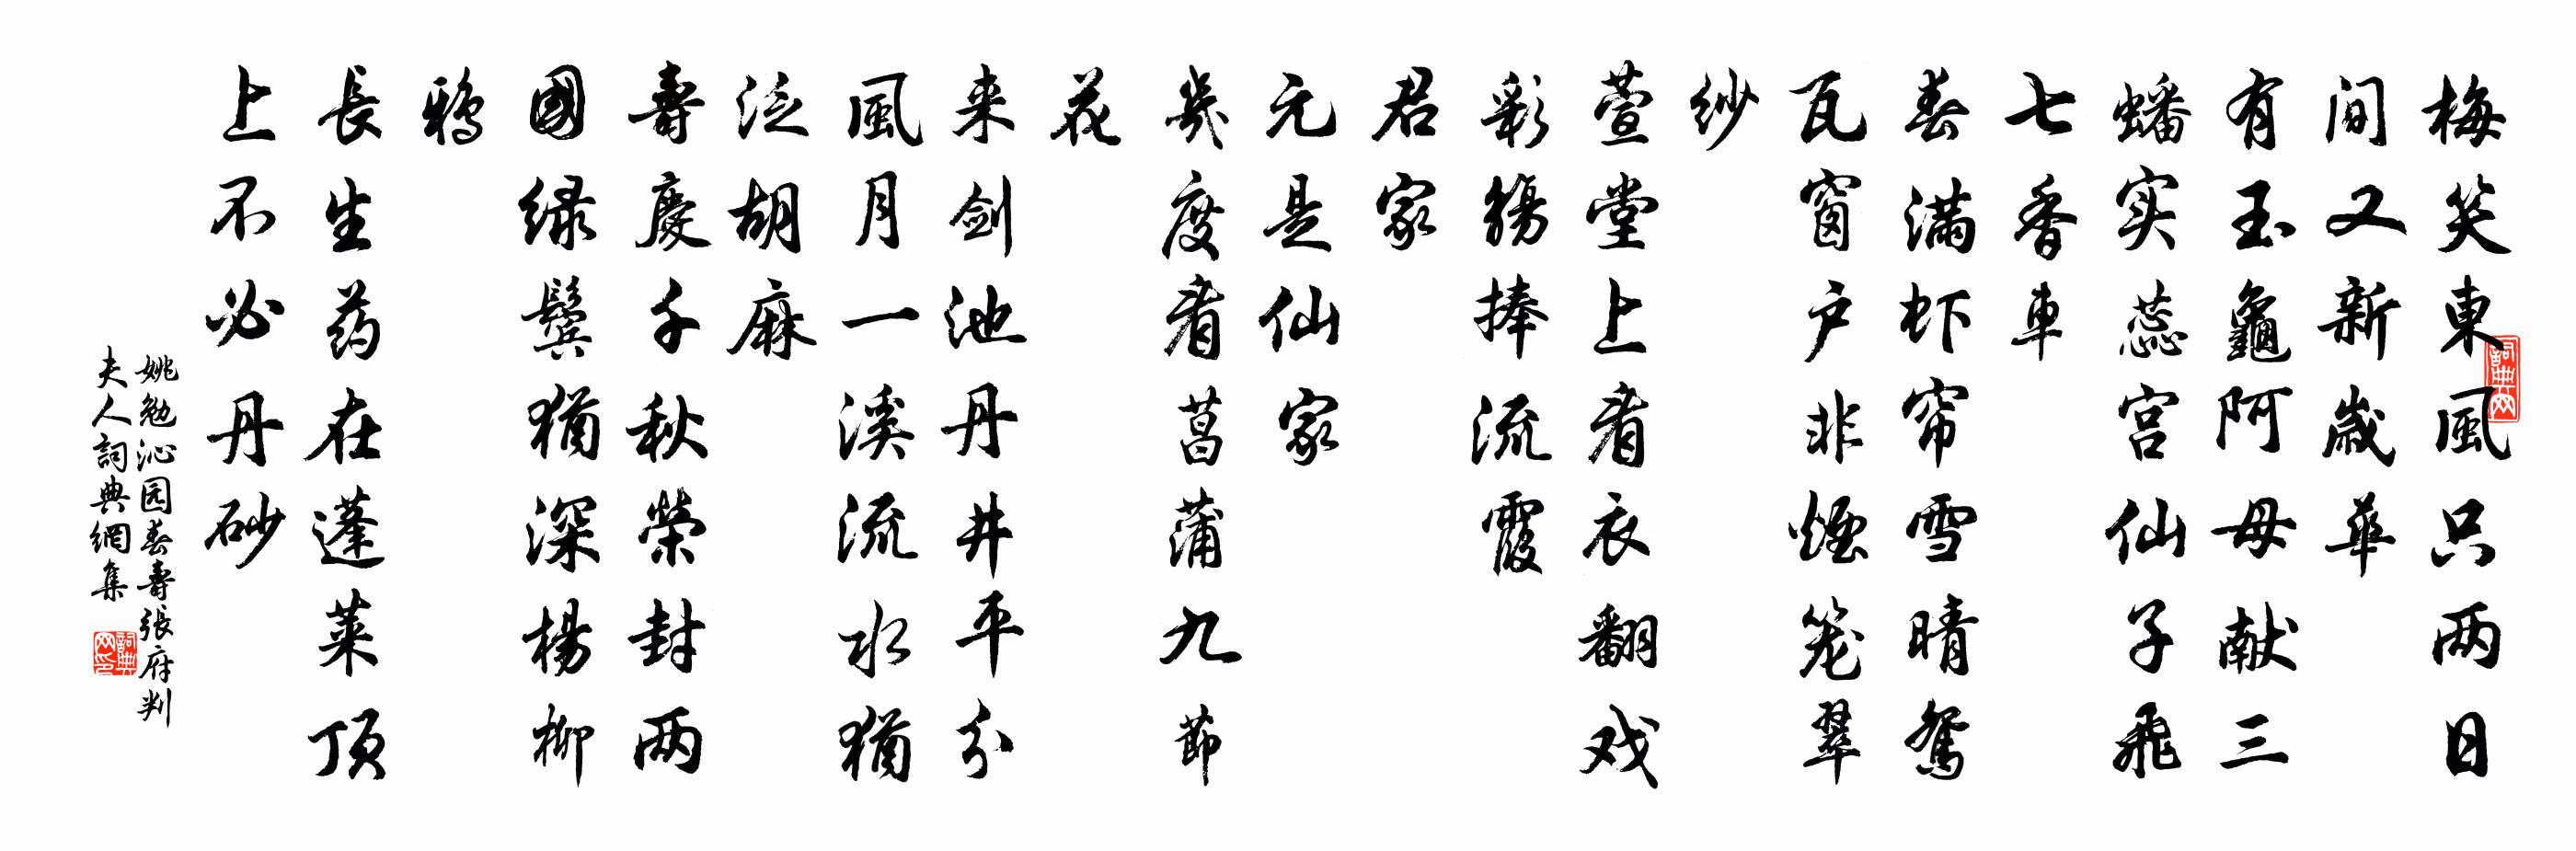 梅笑東風只两日
间又新歲華
有玉龜阿母献三
蟠实蕊宫仙子飛
七香車
春满虾帘雪晴鸳
瓦窗户非煙笼翠
纱
萱堂上看衣翻戏
彩觞捧流霞
君家
元是仙家
幾度看菖蒲九節
花
来剑池丹井平分
風月一溪流水猶
泛胡麻
壽慶千秋榮封两
國绿鬓猶深楊柳
鸦
長生药在蓬莱顶
上不必丹砂
姚勉沁园春壽張府判
夫人詞典網集
詞典网
詞典网印